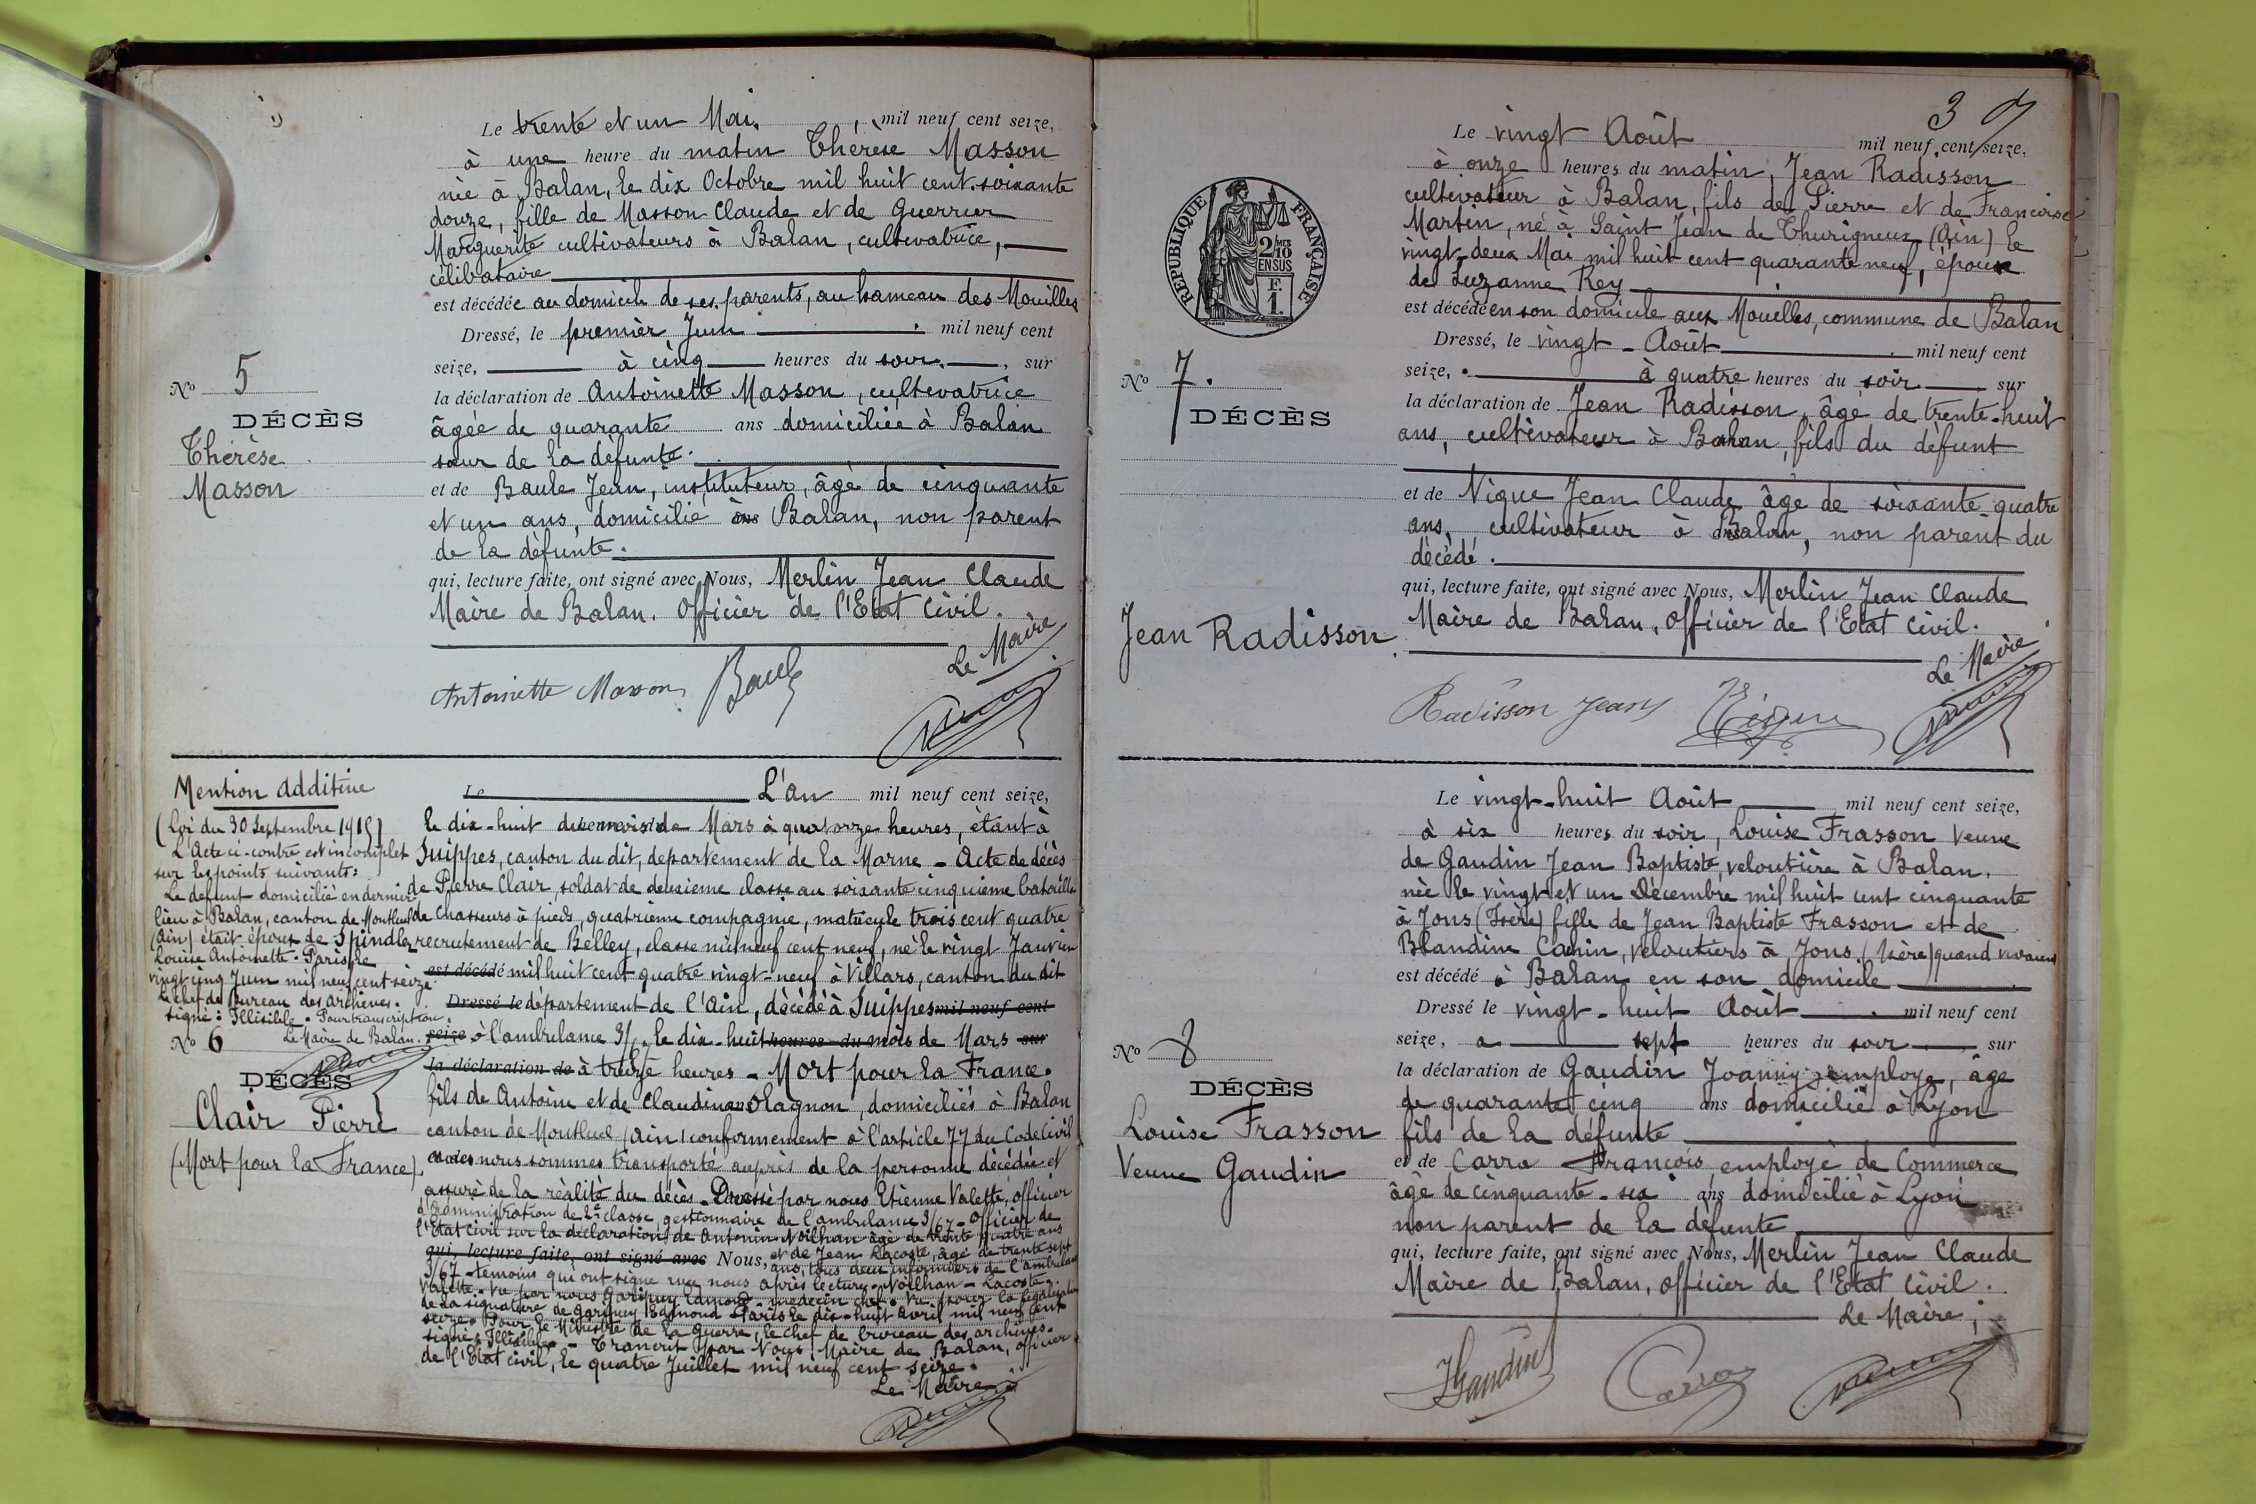 Le trente et un Mai, mil neuf cent seize,
à une heure du matin Thérèse Masson
née à Balan, le dix Octobre mil huit cent soixante
douze, fille de Masson Claude et de Guerrier
Marguerite cultivateurs à Balan, cultivatrice,
célibataire
est décédée au domicile de ses parents, au hameau des Mouilles
Dressé, le premier Juin mil neuf cent
seize, à cinq heures du soir, sur
la déclaration de Antoinette Masson, cultivatrice
âgée de quarante ans domiciliée à Balan
sœur de la défunte.
et de Baule Jean, instituteur, âgé de cinquante
et un ans, domicilié à ans Balan, non parent
de la défunte.
qui, lecture faite, ont signé avec Nous, Merlin Jean Claude
Maire de Balan. Officier de l'Etat Civil.
Le Maire
Antoinette Masson Baule
No 5
DÉCÈS
Thérèse
Masson
Mention additive
(Loi du 30 Septembre 1915)
L'Acte ci-contre est incomplet
sur les points suivants:
Le défunt domicilié en dernier
lieu à Balan, canton de Montluel
(Ain) était époux de Spindler
Louise Antoinette. Paris, le
vingt cinq Juin mil neuf cent seize.
Le chef de Bureau des archives.
signé: Illisible. Pour transcription.
Le Maire de Balan.
No 6
DÉCÈS
Clair Pierre
(Mort pour la France)
Le L'an mil neuf cent seize,
le dix-huit du mois de Mars à quatorze heures, étant à
Suippes, canton du dit, département de la Marne - Acte de décès
de Pierre Clair, soldat de deuxième classe au soixante cinquième bataillon
de Chasseurs à pieds, quatrième compagnie, matricule trois cent quatre
recrutement de Belley, classe mil neuf cent neuf, né le vingt Janvier
est décédé mil huit cent quatre vingt-neuf à Villars, canton du dit
Dressé le département de l'Ain, décédé à Suippes mil neuf cent
seize à l'ambulance 3/, le dix-huit heures du mois de Mars sur
la déclaration de à treize heures - Mort pour la France.
fils de Antoine et de Claudine ans Lagnon, domiciliés à Balan
canton de Montluel (Ain) conformément à l'article 77 du Code Civil
et de nous sommes transporté auprès de la personne décédée et
assuré de la réalité du décès - Dressé par nous Etienne Valette, officier
d'administration de 2e classe, gestionnaire de l'ambulance 3/67 - Officier de
l'Etat civil sur la déclaration de Antonin Noilhan âgé de trente quatre ans
qui, lecture faite, ont signé avec Nous, et de Jean Lacoste, âgé de trente sept
ans, tous deux infirmiers de l'ambulance
3/67 - témoins qui ont signé avec nous après lecture - Noilhan - Lacoste.
Valette. Vu par nous Garipuy Edmond - médecin chef. Vu pour la légalisation
de la signature de Garipuy Edmond - Paris le dix-huit Avril mil neuf cent
seize. Pour le Ministre de la guerre, le chef de bureau des archives.
signé: Illisible. - Transcrit par Nous, Maire de Balan, officier
de l'Etat civil, le quatre Juillet mil neuf cent seize.
Le Maire
3
RÉPUBLIQUE FRANÇAISE
2/10 MES
EN SUS
F.
1.
Le vingt Août mil neuf cent seize,
à onze heures du matin, Jean Radisson
cultivateur à Balan, fils de Pierre et de Françoise
Martin, né à Saint Jean de Thurigneux (Ain) le
vingt-deux Mai mil huit cent quarante neuf, époux
de Suzanne Rey
est décédé en son domicile aux Mouilles, commune de Balan
Dressé, le vingt - Août mil neuf cent
seize, à quatre heures du soir sur
la déclaration de Jean Radisson, âgé de trente-huit
ans, cultivateur à Balan, fils du défunt
et de Nique Jean Claude âgé de soixante quatre
ans, cultivateur à Balan, non parent du
décédé.
qui, lecture faite, ont signé avec Nous, Merlin Jean Claude
Maire de Balan, Officier de l'Etat Civil.
Le Maire
Radisson Jean
No 7.
DÉCÈS
Jean Radisson
Le vingt-huit Août mil neuf cent seize,
à six heures du soir, Louise Frasson Veuve
de Gaudin Jean Baptiste, veloutière à Balan,
née le vingt et un Décembre mil huit cent cinquante
à Jons (Isère) fille de Jean Baptiste Frasson et de
Blandine Canin, veloutiers à Jons (Isère) quand vivaient
est décédé à Balan en son domicile
Dressé le vingt-huit Août mil neuf cent
seize, à sept heures du soir sur
la déclaration de Gaudin Joanny employé, âgé
de quarante cinq ans domicilié à Lyon
fils de la défunte
et de Carra François employé de Commerce
âgé de cinquante-six ans domicilié à Lyon
non parent de la défunte
qui, lecture faite, ont signé avec Nous, Merlin Jean Claude
Maire de Balan, officier de l'Etat Civil.
Le Maire;
JGaudin Carra
No 8
DÉCÈS
Louise Frasson
Veuve Gaudin